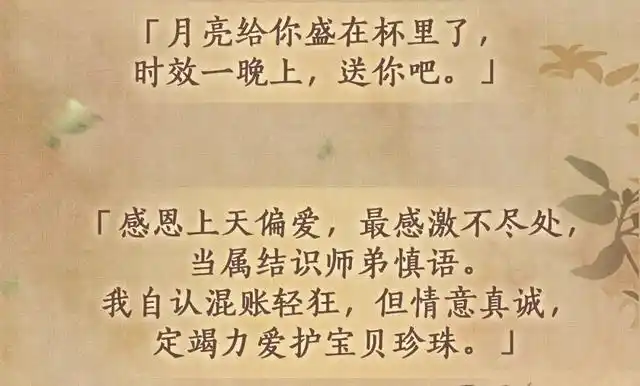 「月亮给你盛在杯里了，
时效一晚上，送你吧。」
「感恩上天偏爱，最感激不尽处，
当属结识师弟慎语。
我自认混账轻狂，但情意真诚，
定竭力爱护宝贝珍珠。」